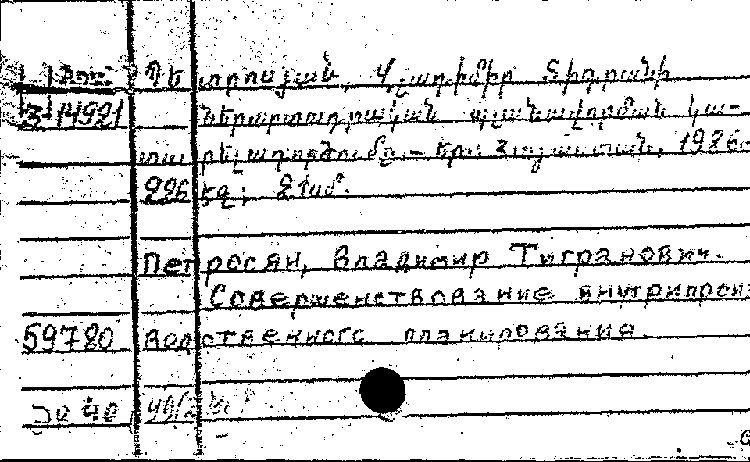 Հայ. Պետրոսյան, Վլադիմիր Տիգրանի
3-14921 Ներարտադրական պլանավորման կա-
տարելագործումը. – Եր.: Հայաստան, 1986.–
226 էջ;
Петросян, Владимир Тигранович.
Совершенствование внутрипроиз
59780 водственного планирования.
40